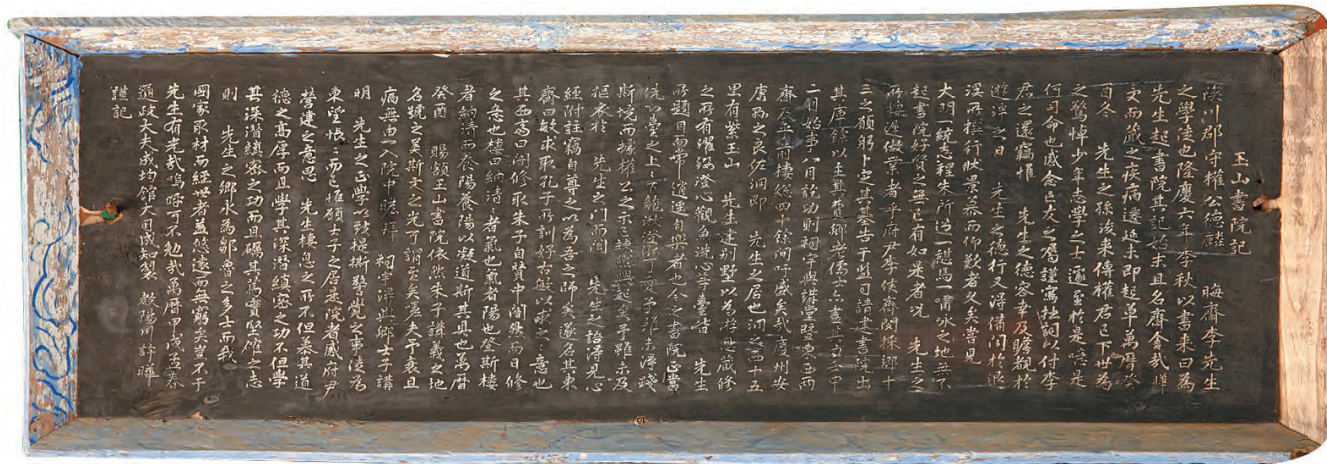 玉山書院記
陜川郡守權公德麟 晦齋李先生
之學徒也隆慶六年季秋以書來曰為
先生起書院其記始末且名齋舍哉曄
文而蔽之疾病遷延未即起草萬曆癸
酉冬 先生之孫浚來傳權君已下世為
之驚悼少年志學之士遽至於是嗟是
何司命也感念亡友之屬謹寓拙詞以付李
君之還竊惟 先生之德容幸及瞻覩於
遊泮之日 先生之德行又得備聞於退
溪所撰行狀景慕而仰歎者久矣嘗見
大明一統志程朱所過一騎馬一嘯咏之地無不
起書院好賢之無已有如是者況 先生之
所棲遲做業者乎府尹李侯齋閔採鄉十
三之願躬卜定其基告于監司請建書院出
其庫餘以主其費鄉老儒士亦盡其力壬申
二月始事八月訖功則祠宇與講堂曁東西兩
齋前有樓總四十餘間吁盛矣哉慶州安
康縣之良佐洞即 先生之居也洞之西十五
里有紫玉山 先生建別墅以為游息藏修
之所有濯纓澄心觀魚洗心等臺皆 先生
所題目而常逍遙自與者也今之書院正當
洗心臺之上下龍湫澄潭可
斯境而揚權公之示之諫與起矣乎雖未及
摳衣於 先生之門而聞 先生之語淨見心
經附註竊自尊之以為吾之師矣遂名其東
齋曰敏求取孔子所訓好古敏以求之之意也
其西齋曰闇修取朱子自贊中闇然而日修
之意也樓曰納清清者氣也氣者陽也登斯樓
者納清而養陽養陽以凝道斯其具也萬曆
癸酉 賜額玉山書院依然朱子講義之地
名號之美斯文之光可謂至矣夫予衰且
病無由一入院中瞻拜 祠宇得與鄉士子講
明 先生之正學以致提撕警覺之事徒為
東望悵悵而已惟願士子之居是院者感府尹
營建之意思 先生棲息之所不但慕其道
德之高厚而且學其深潛縝密之功不但學
其深潛縝密之功而且礪其篤實堅確之志
則 先生之鄉永為鄒魯之多士而我
國家取材而經世者蓋悠遠而無窮矣豈不于
先生有光哉嗚呼可不勉哉萬曆甲戌孟春
通政大夫成均館大司成知製 敎陽川許曄
謹記